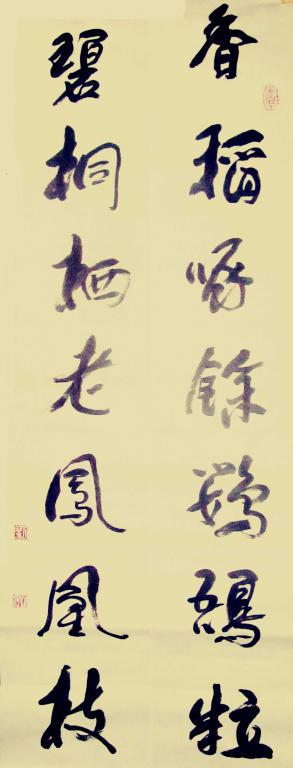 香稻啄餘鸚鵡粒
碧桐栖老鳳凰枝